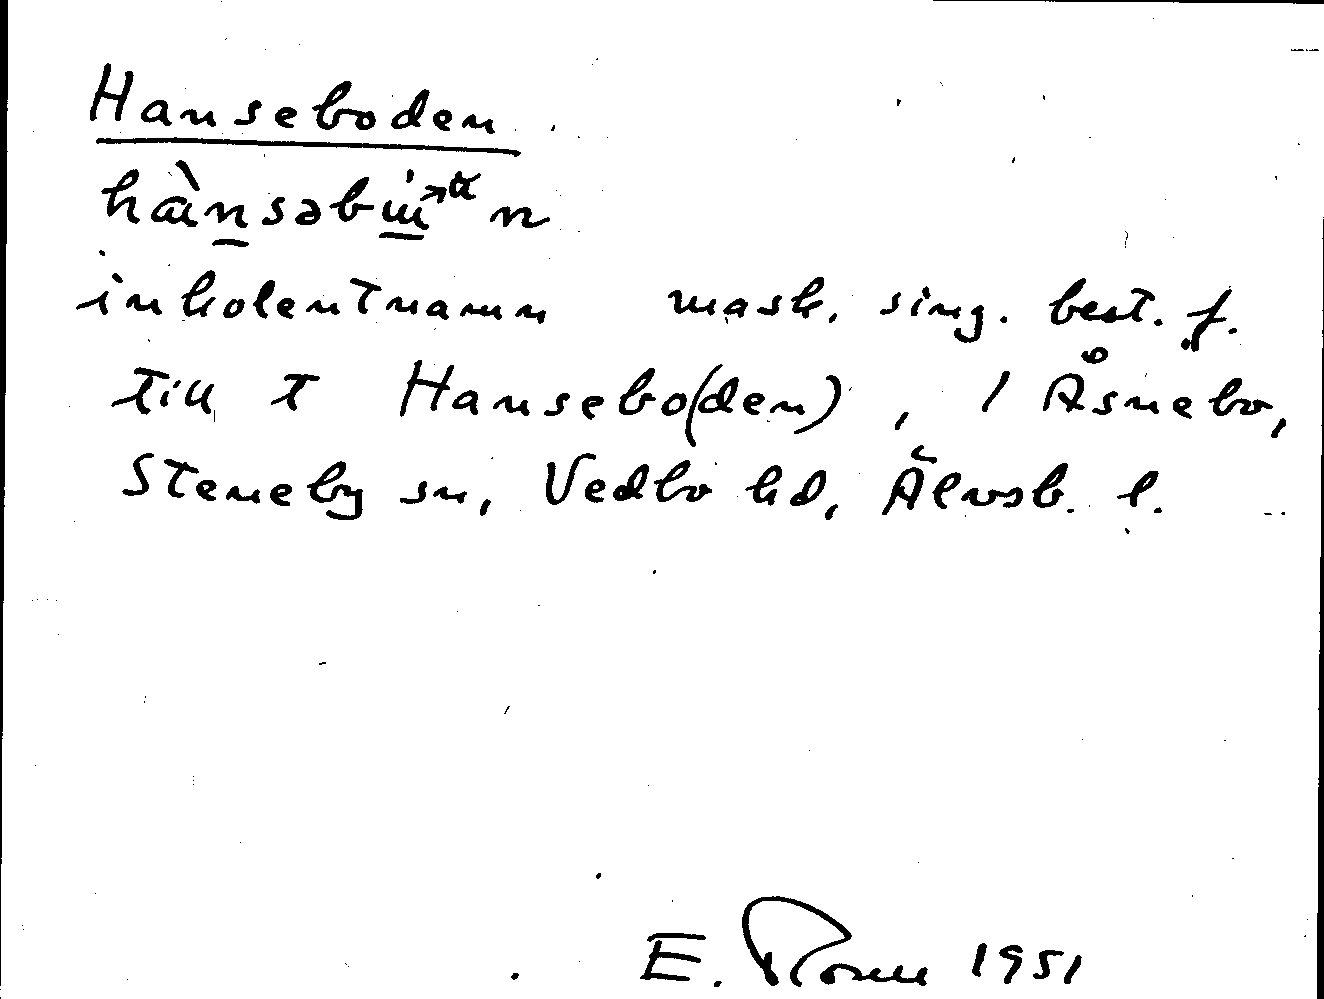 Hanseboden
hànsəbu̇n
inkolentnamn mask. sing. best. f.
till t Hansebo(den), 1 Åsnebo,
Steneby sn, Vedbo hd, Älvsb. l.
E. 1951